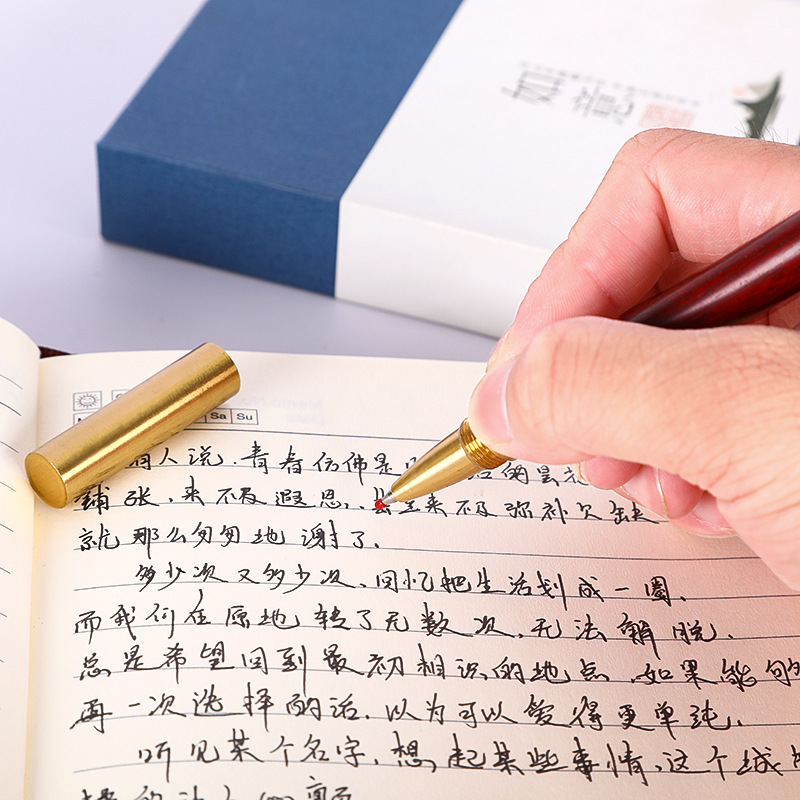 如意
Sa Su
有人说，青春仿佛是
铺张，来不及遐思，甚至来不及弥补欠缺
就那么匆匆地谢了，
多少次又多少次，回忆把生活划成一圈，
而我们在原地转了无数次，无法解脱，
总是希望回到最初相识的地点，如果能够
再一次选择的话，以为可以爱得更单纯，
听见某个名字，想起某些事情，这个城